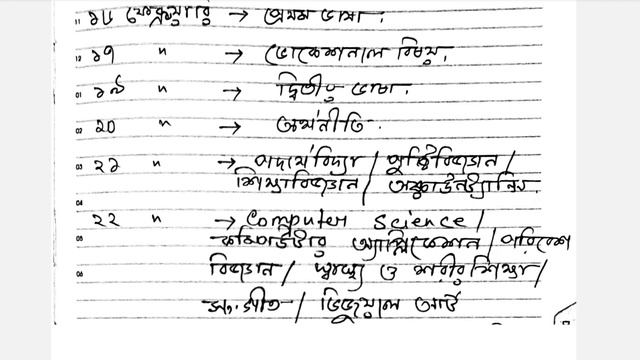 ১৬ ফেব্রুয়ারি → প্রথম ভাষা.
১৭ " → ভোকেশনাল বিষয়.
১৯ " → দ্বিতীয় ভাষা.
২০ " → অর্থনীতি.
২১ " → পদার্থবিদ্যা / পুষ্টিবিজ্ঞান /
শিক্ষাবিজ্ঞান / অ্যাকাউন্ট্যান্সি.
২২ " → Computer Science /
কম্পিউটার অ্যাপ্লিকেশন / পরিবেশ
বিজ্ঞান / স্বাস্থ্য ও শরীরশিক্ষা /
সংগীত / ভিজুয়াল আর্ট